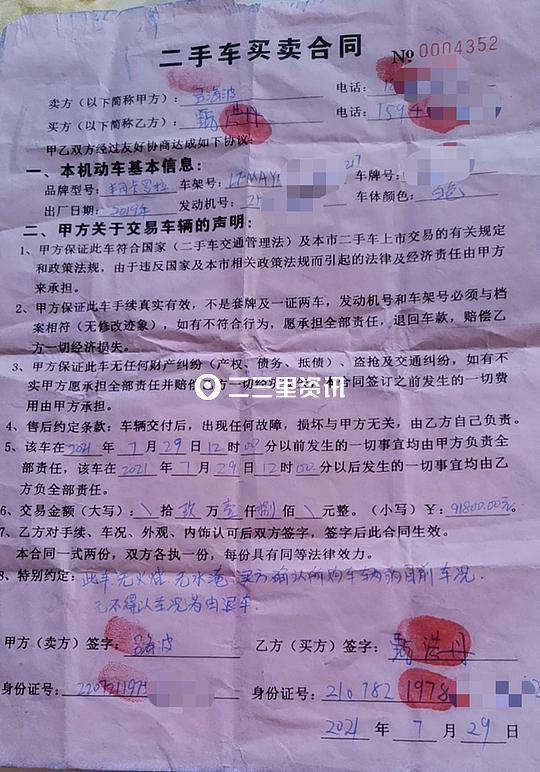 二手车买卖合同
№ 0004352
卖方（以下简称甲方）： 电话：
买方（以下简称乙方）：甄浩丹 电话：159
甲乙双方经过友好协商达成如下协议：
一、本机动车基本信息：
品牌型号： 车架号： 车牌号：
出厂日期：2019年 发动机号： 车体颜色：白色
二、甲方关于交易车辆的声明：
1、甲方保证此车符合国家（二手车交通管理法）及本市二手车上市交易的有关规定
和政策法规，由于违反国家及本市相关政策法规而引起的法律及经济责任由甲方
来承担。
2、甲方保证此车手续真实有效，不是套牌及一证两车，发动机号和车架号必须与档
案相符（无修改迹象），如有不符合行为，愿承担全部责任，退回车款，赔偿乙
方一切经济损失。
3、甲方保证此车无任何财产纠纷（产权、债务、抵债）、盗抢及交通纠纷，如有不
实甲方愿承担全部责任并赔偿乙方一切经 合同签订之前发生的一切费
用由甲方承担。
二三里资讯
4、售后约定条款：车辆交付后，出现任何故障，损坏与甲方无关，由乙方自己负责。
5、该车在2021年7月29日12时00分以前发生的一切事宜均由甲方负责全
部责任，该车在2021年7月29日12时00分以后发生的一切事宜均由乙
方负全部责任。
6、交易金额（大写）：\拾玖万壹仟捌佰\元整。（小写）￥：91800.00元。
7、乙方对手续、车况、外观、内饰认可后双方签字，签字后此合同生效。
本合同一式两份，双方各执一份，每份具有同等法律效力。
8、特别约定：此车无火烧 无水淹、买方确认所购车辆的目前车况.
已不得以车况为由退车.
甲方（卖方）签字： 乙方（买方）签字：甄浩丹
身份证号： 身份证号：210782 1978
2021年7月29日